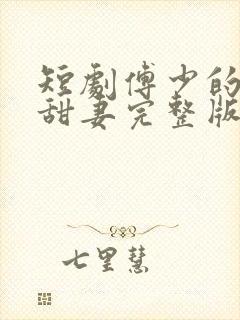 短劇傅少的
甜妻完整版
七里慧